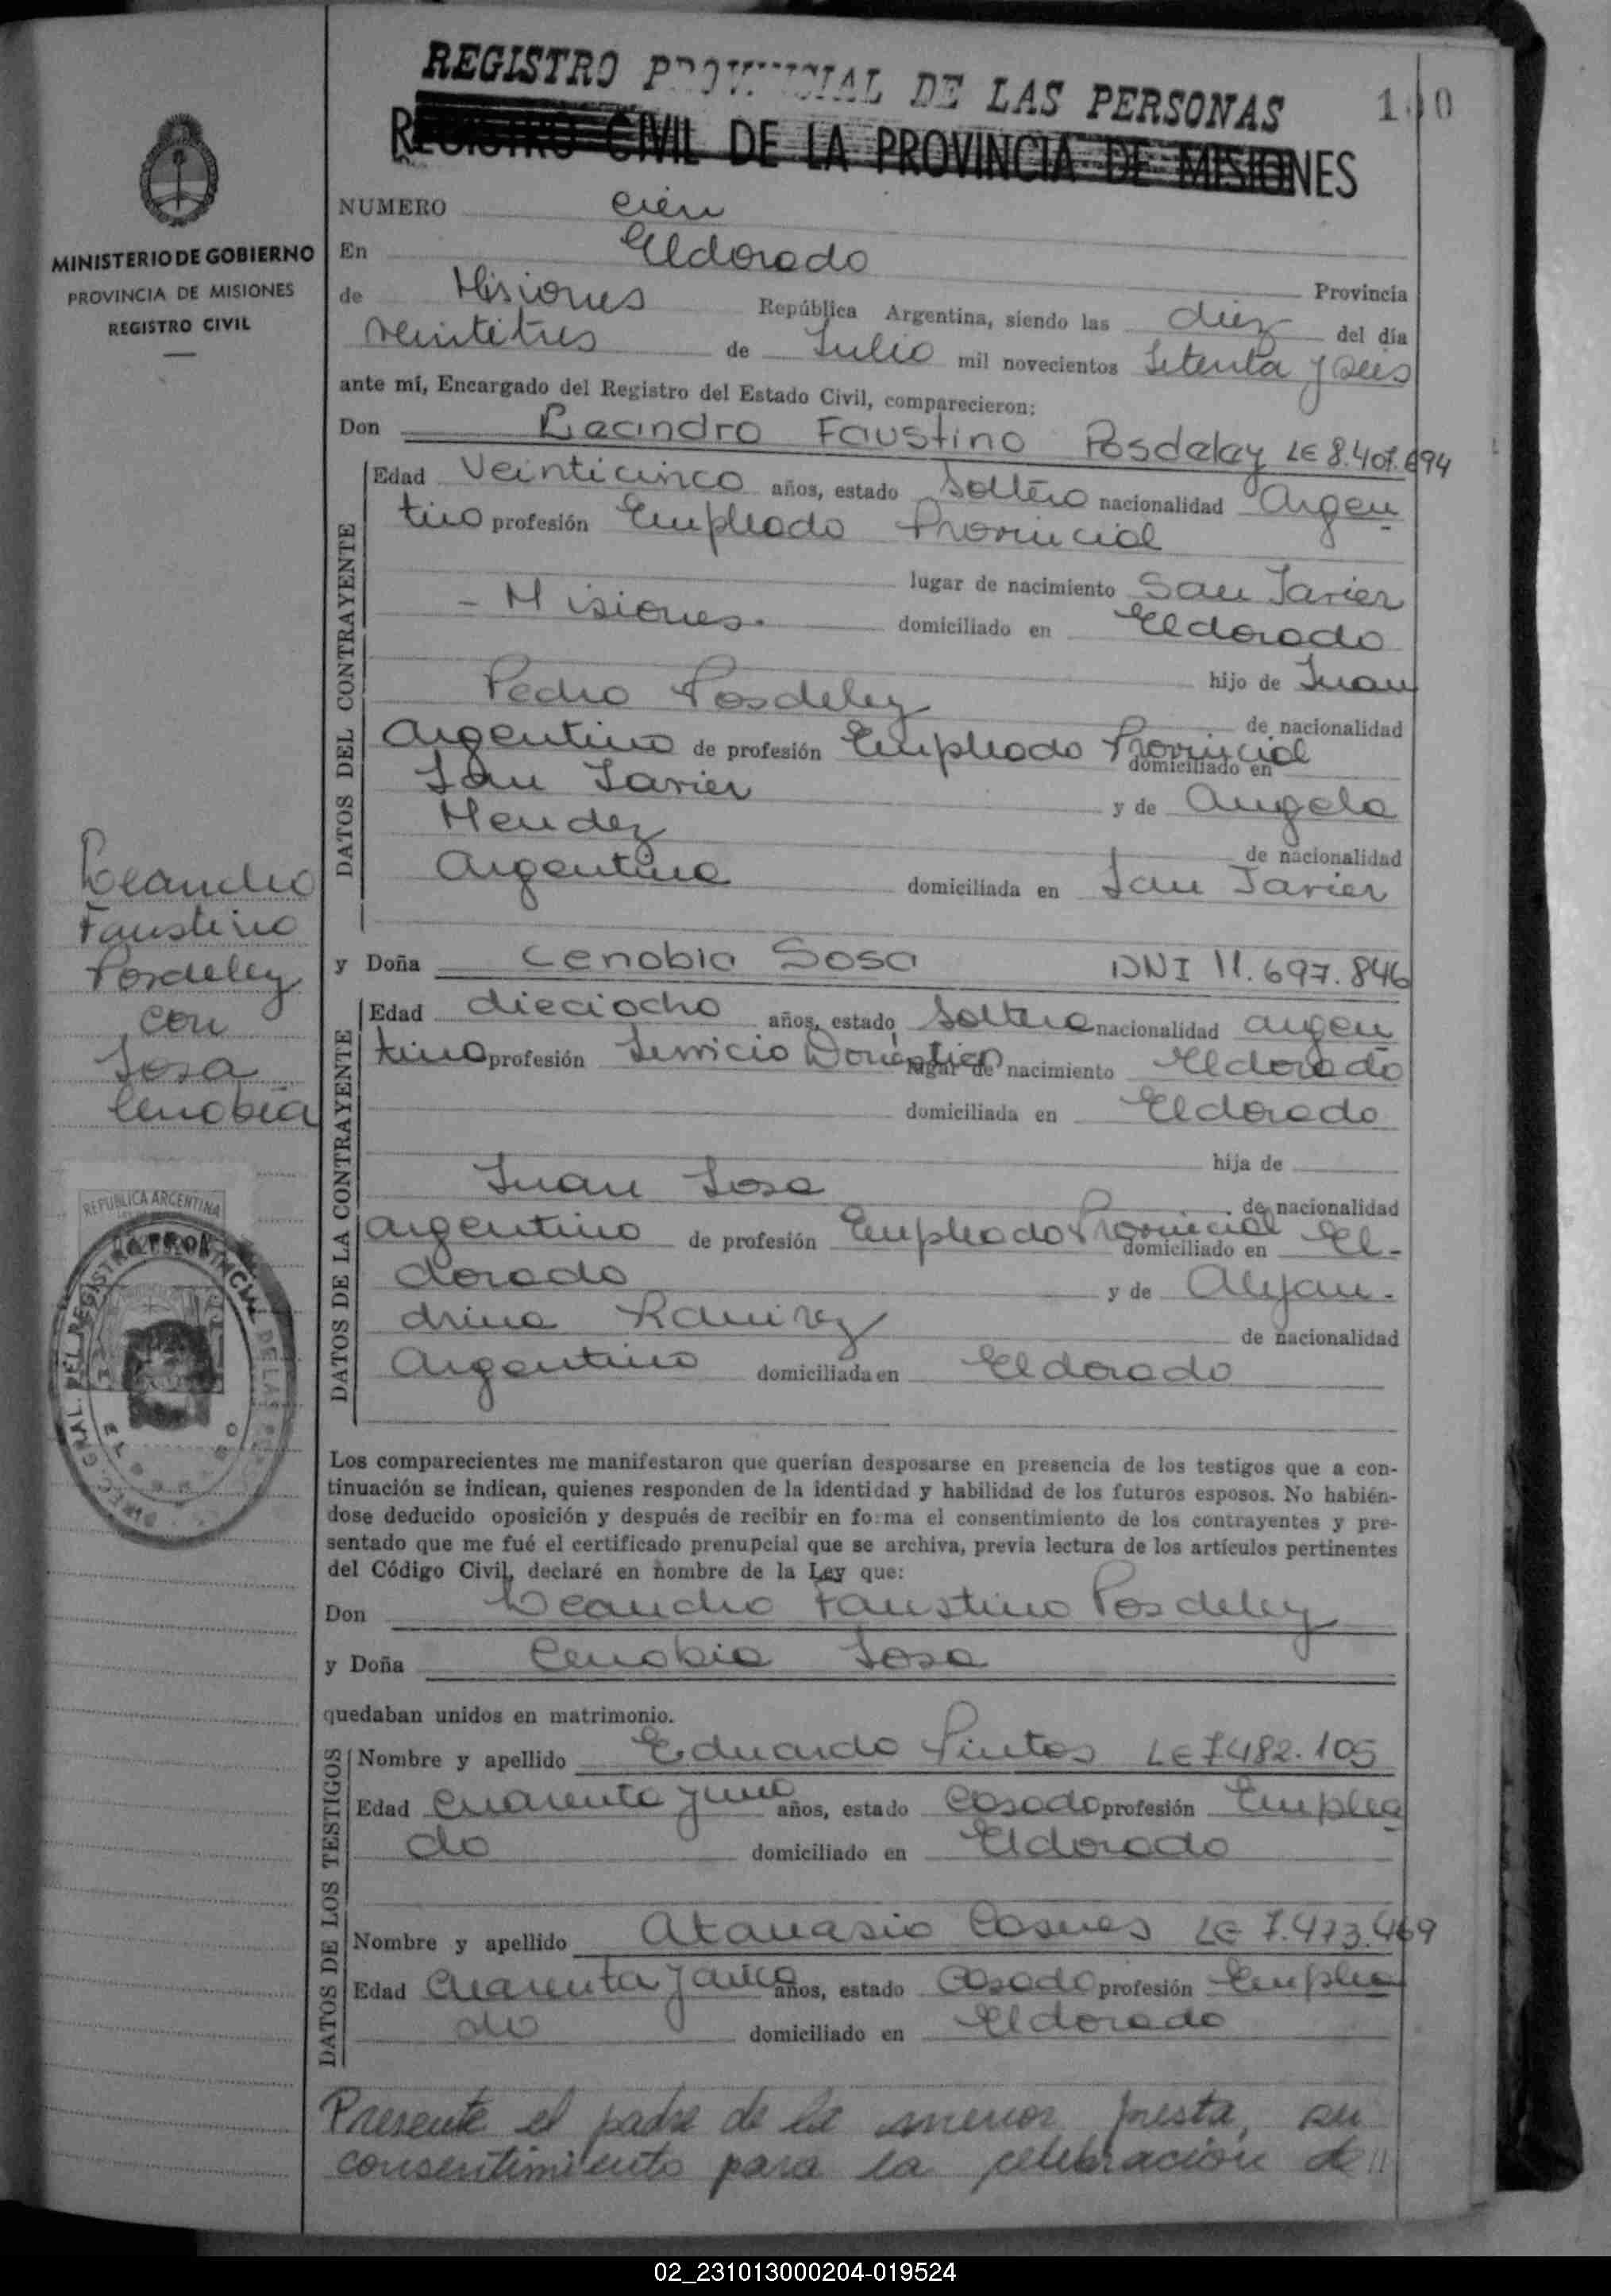 REGISTRO PROVINCIAL DE LAS PERSONAS
100
REGISTRO CIVIL DE LA PROVINCIA DE MISIONES
MINISTERIO DE GOBIERNO
PROVINCIA DE MISIONES
REGISTRO CIVIL
NUMERO cien
En Eldorado
Provincia
de Misiones República Argentina, siendo las diez del día
veintitres de Julio mil novecientos setenta y seis
ante mí, Encargado del Registro del Estado Civil, comparecieron:
Don Leandro Faustino Posdeley LE 8.407.694
DATOS DEL CONTRAYENTE
Edad Veinticinco años, estado Soltero nacionalidad Argen
tino profesión Empleado Provincial
lugar de nacimiento San Javier
- Misiones. domiciliado en Eldorado
hijo de Juan
Pedro Posdeley
de nacionalidad
Argentino de profesión Empleado Provincial
domiciliado en
San Javier y de Angela
Mendez
de nacionalidad
Argentina domiciliada en San Javier
Leandro
Faustino
Posdeley
con
Sosa
Cenobia
y Doña Cenobia Sosa DNI 11.697.846
DATOS DE LA CONTRAYENTE
Edad dieciocho años, estado Soltera nacionalidad argen
tina profesión Servicio Doméstico lugar de nacimiento Eldorado
domiciliada en Eldorado
hija de
Juan Sosa
de nacionalidad
argentino de profesión Empleado Provincial domiciliado en El-
dorado y de Alejan-
drina Ramirez
de nacionalidad
Argentina domiciliada en Eldorado
REPUBLICA ARGENTINA
Los comparecientes me manifestaron que querían desposarse en presencia de los testigos que a con-
tinuación se indican, quienes responden de la identidad y habilidad de los futuros esposos. No habién-
dose deducido oposición y después de recibir en forma el consentimiento de los contrayentes y pre-
sentado que me fué el certificado prenupcial que se archiva, previa lectura de los artículos pertinentes
del Código Civil, declaré en nombre de la Ley que:
Don Leandro Faustino Posdeley
y Doña Cenobia Sosa
quedaban unidos en matrimonio.
DATOS DE LOS TESTIGOS
Nombre y apellido Eduardo Pintos LE 7482.105
Edad Cuarenta y uno años, estado Casado profesión Emplea
do domiciliado en Eldorado
Nombre y apellido Atanasio LE 7.473.469
Edad Cuarenta y cinco años, estado Casado profesión Emplea
do domiciliado en Eldorado
Presente el padre de la menor presta, su
consentimiento para la celebración de //
02_231013000204-019524